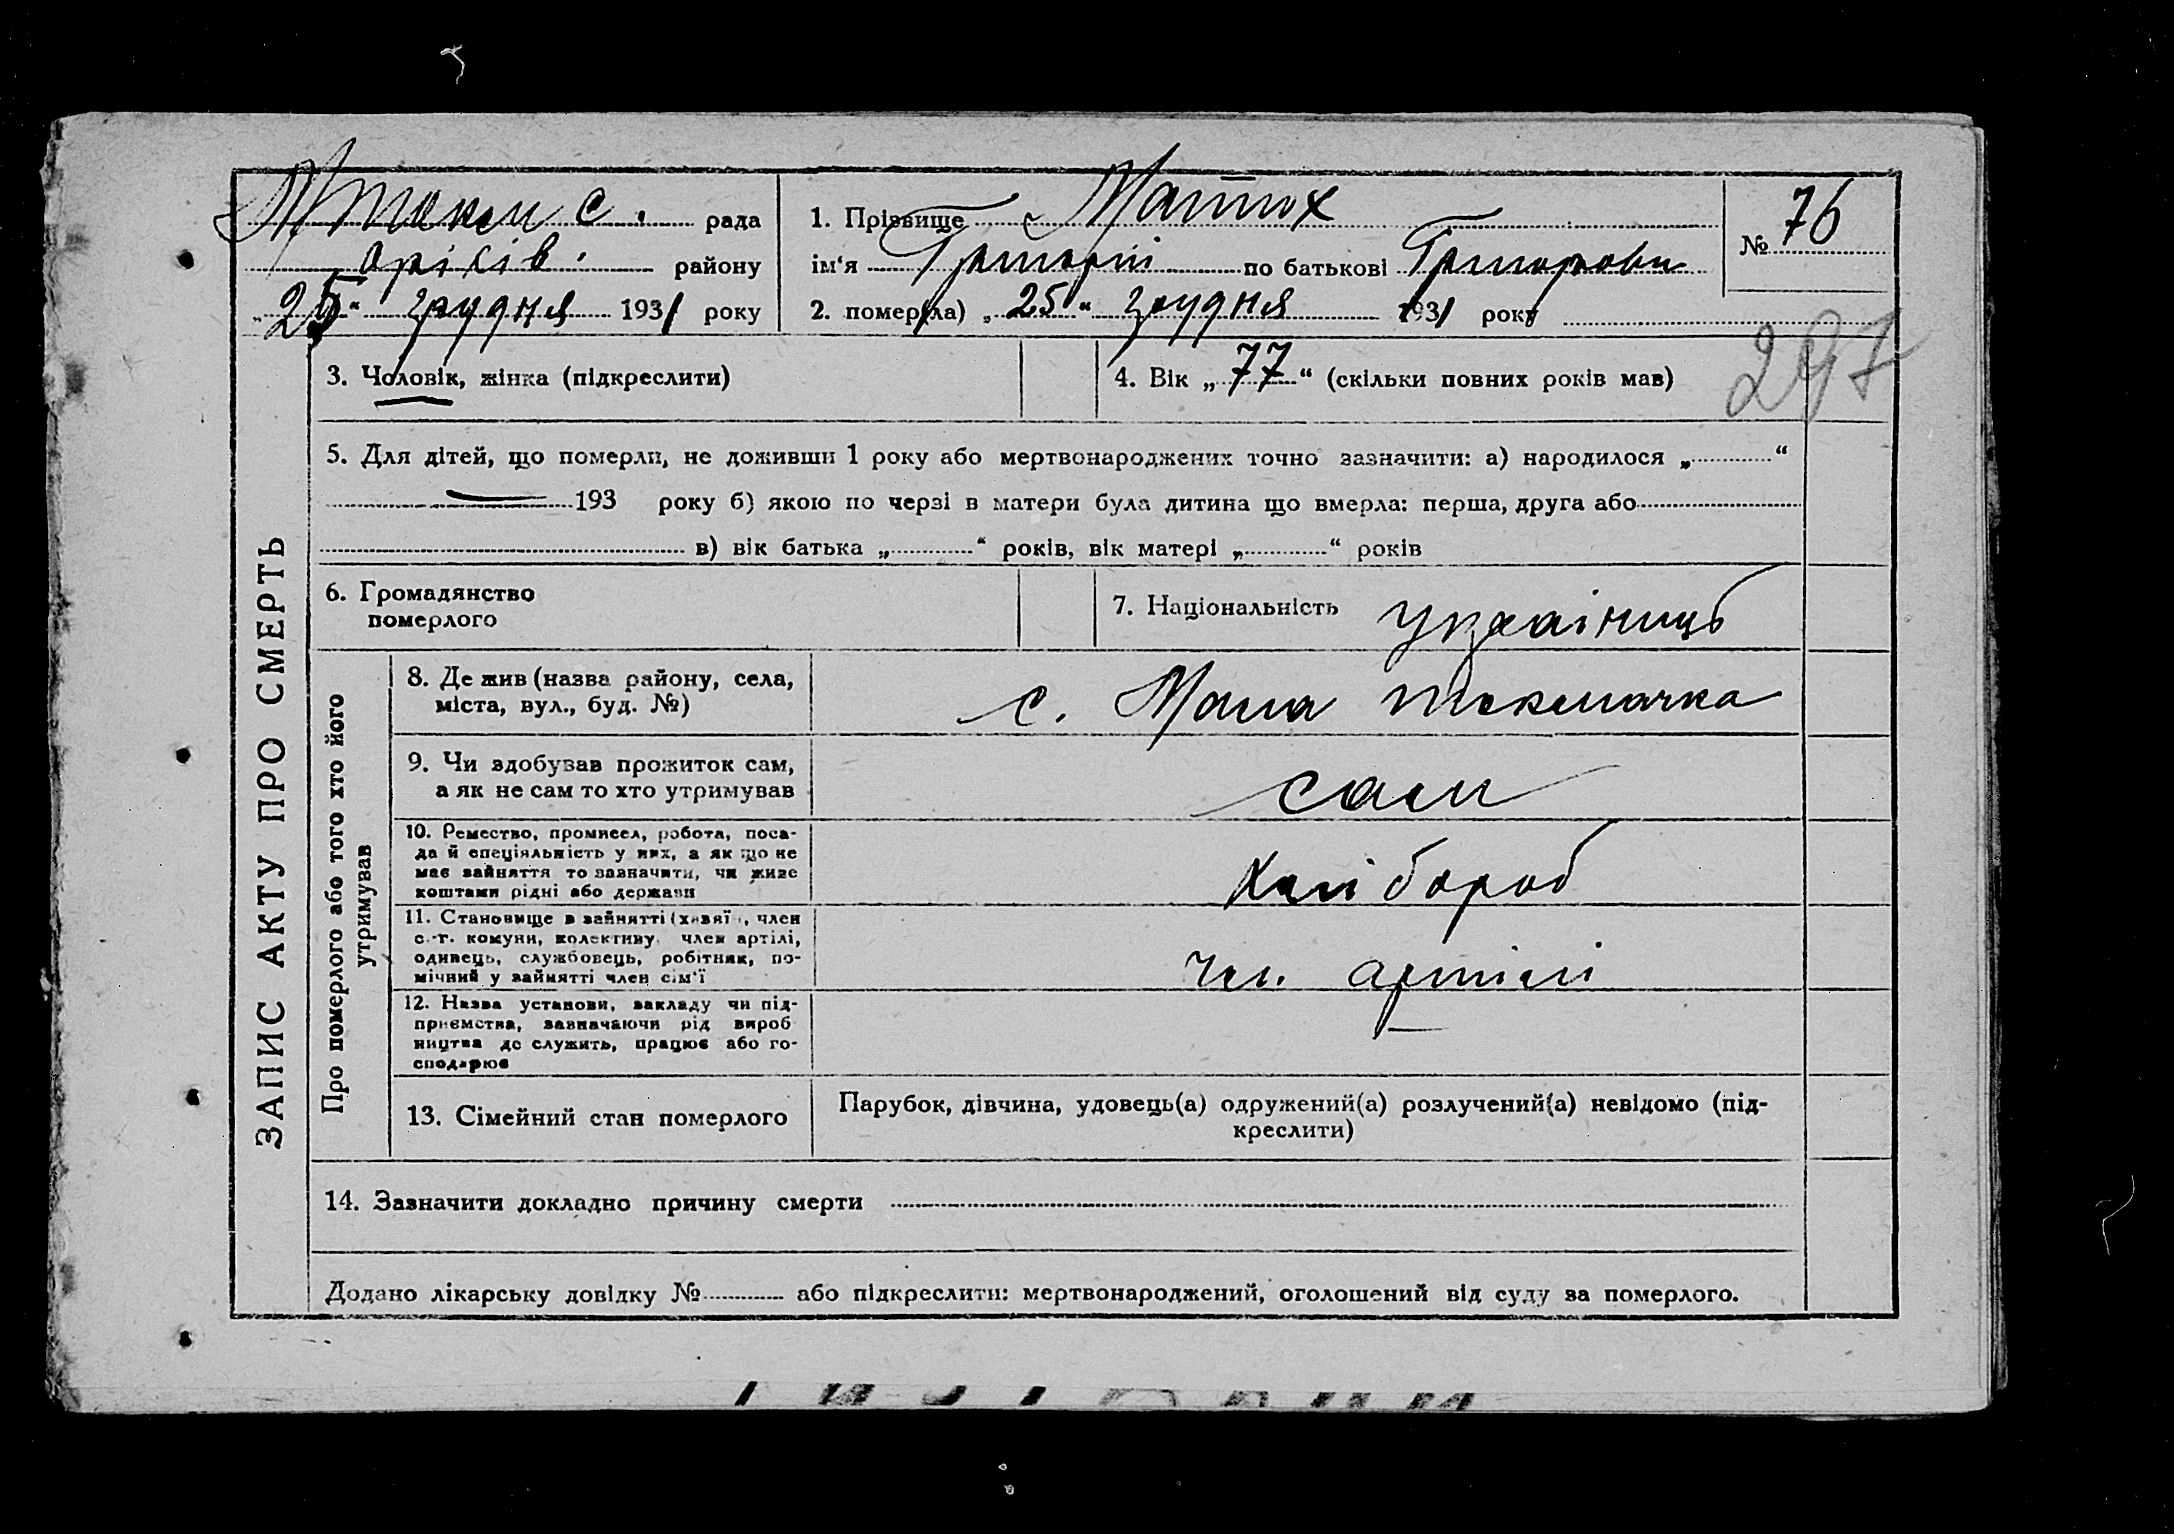 М Токм с. рада
Оріхів. району
„25“ грудня 1931 року
1. Прізвище Матюх
ім‘я Григорій по батькові Григорови
2. помер(ла) „25“ грудня 1931 року
№ 76
297
3. Чоловік, жінка (підкреслити)
4. Вік „77“ (скільки повних років мав)
5. Для дітей, що померли, не доживши 1 року або мертвонароджених точно зазначити: а) народилося „ “
193 року б) якою по черзі в матери була дитина що вмерла: перша, друга або
в) вік батька „ “ років, вік матері „ “ років
6. Громадянство
померлого
7. Національність українець
ЗАПИС АКТУ ПРО СМЕРТЬ
Про померлого або того хто його
утримував
8. Де жив (назва району, села,
міста, вул., буд. №)
с. Мала Токмачка
9. Чи здобував прожиток сам,
а як не сам то хто утримував
сам
10. Ремество, промисел, робота, поса-
да й спеціяльність у них, а як що не
має зайняття то зазначити, чи живе
коштами рідні або держави
Хлібороб
11. Становище в зайнятті (хазяї, член
с.-г. комуни, колективу, член артілі,
одинець, службовець, робітник, по-
мічний у зайнятті член сім‘ї
чл. артілі
12. Назва установи, закладу чи під-
приємства, зазначаючи рід вироб
ництва де служить, працює або го-
сподарює
13. Сімейний стан померлого
Парубок, дівчина, удовець(а) одружений(а) розлучений(а) невідомо (під-
креслити)
14. Зазначити докладно причину смерти
Додано лікарську довідку № або підкреслити: мертвонароджений, оголошений від суду за померлого.